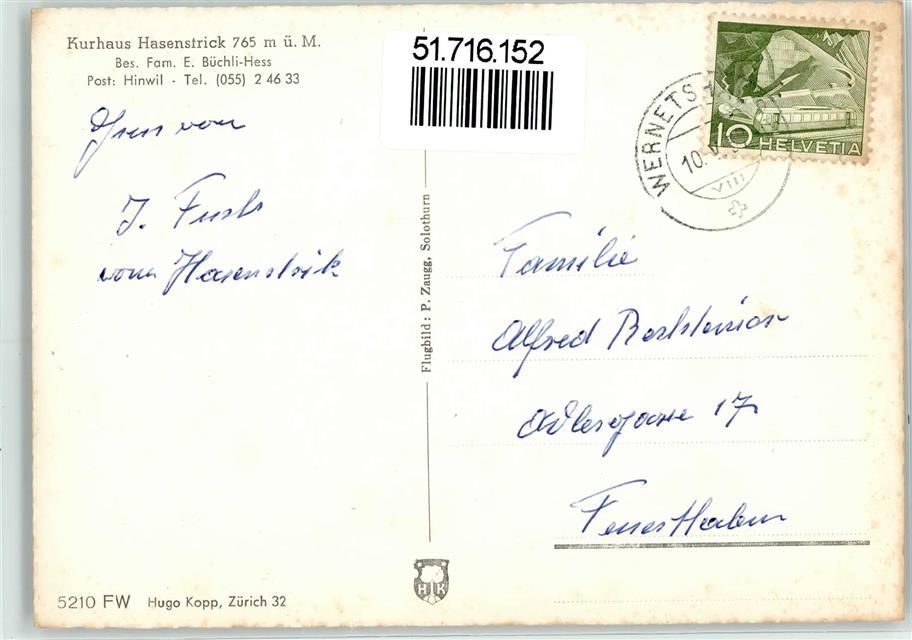 Kurhaus Hasenstrick 765 m ü. M.
Bes. Fam. E. Büchli-Hess
Post: Hinwil - Tel. (055) 2 46 33
51.716.152
WERNETS
10.
VIII
10 HELVETIA
Gruss von
J. Fuchs
vom Hasenstrik
Flugbild: P. Zaugg, Solothurn
Familie
Alfred
17
Feuerthalen
HK
5210 FW Hugo Kopp, Zürich 32